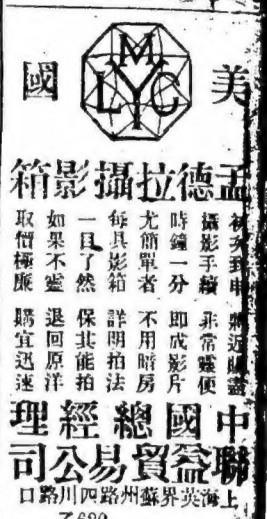 美國
M
L Y C
孟德拉攝影箱
初次到申 將近
攝影手續 非常靈便
時鐘一分 即成影片
尤簡單者 不用暗房
每具影箱 詳明拍法
一目了然 保其能拍
如果不靈 退回原洋
取價極廉 購宜迅速
中國總經理
聯益貿易公司
上海英界蘇州路四川路口